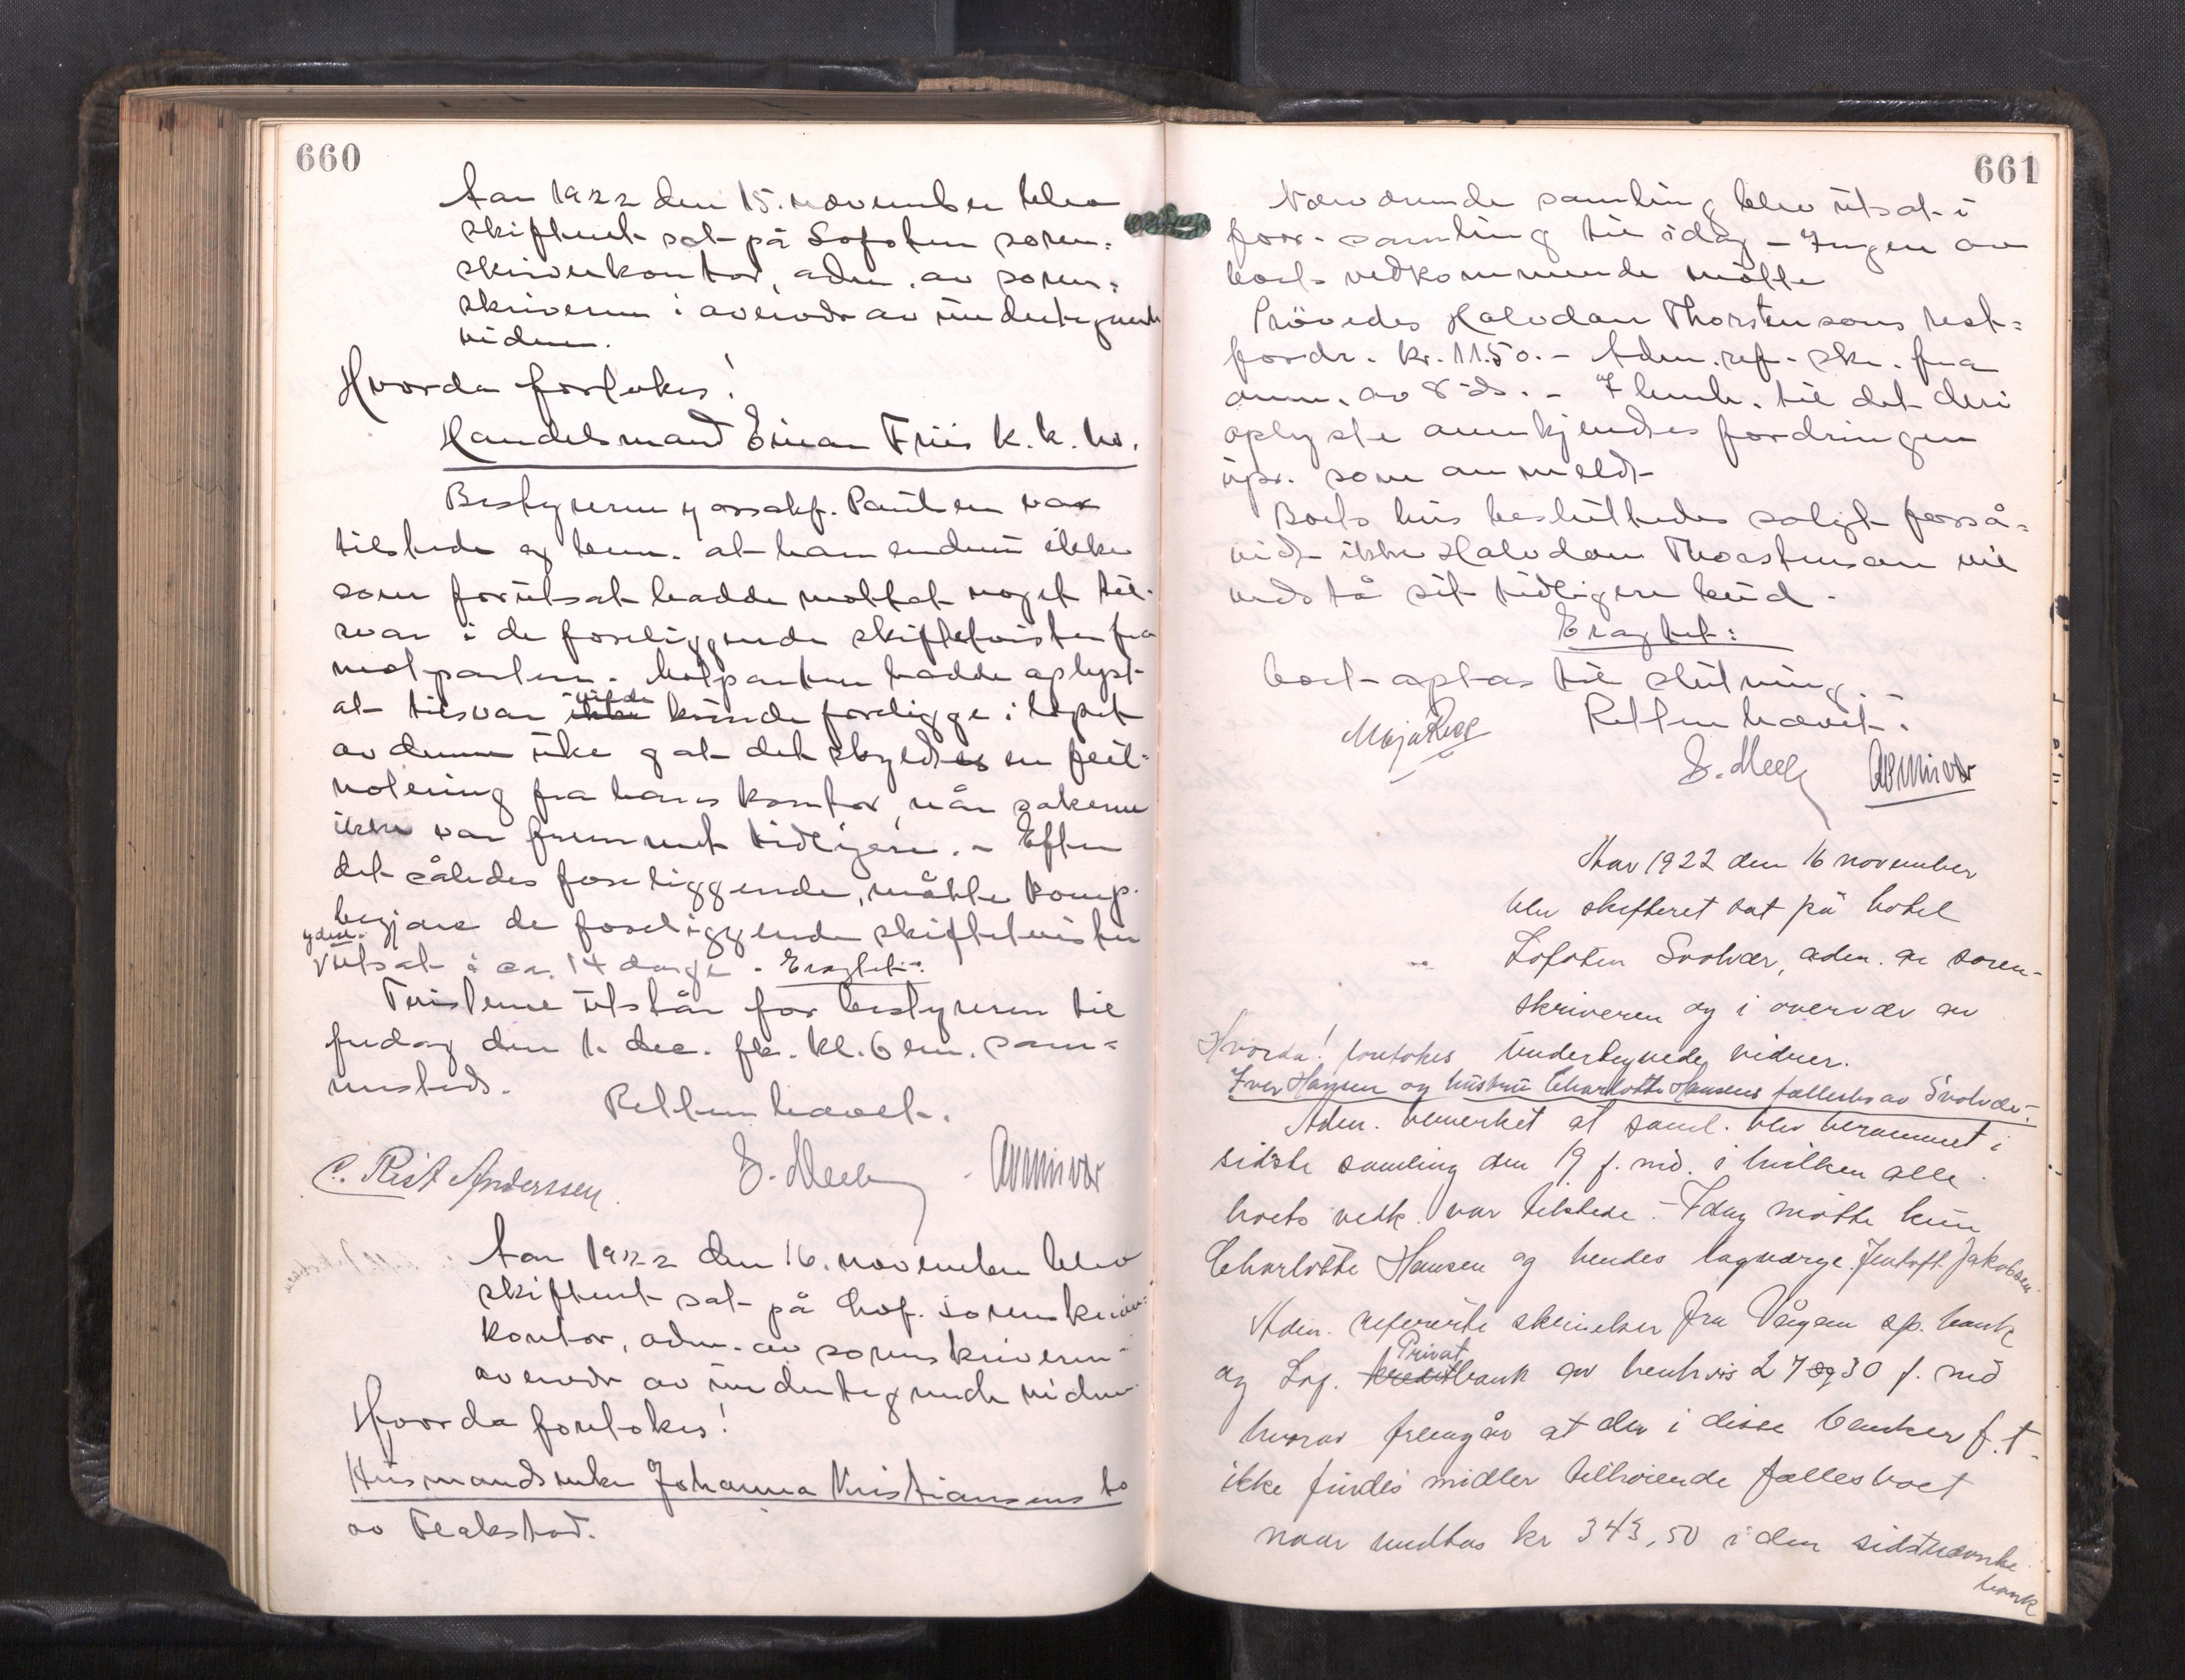 660
Aar 1922 den 15. november blev
skifteret sat på Lofoten soren=
skriverkontor, adm. av soren=
skriveren i overvær av undertegnede
vidner.
Hvorda foretokes!
Handelsmand Einar Friis k.k.bo.
Bestyreren, o.r.sakf. Paulsen var
tilstede og bem. at han endnu ikke
som forutsat hadde mottat noget til-
svar i de foreliggende skiftetvister fra
motparten. Motparten hadde oplyst
at tilsvar vilde kunde foreligge i løpet
av denne uke og at det skyldes en feil-
notering fra hans kontor, når sakerne
ikke var fremmet tidligere. - Efter
det således foreliggende, måtte komp.
begjære de foreliggende skiftetvister
yderl.
utsat i ca. 14 dage. Eragtet:
Tvisterne utstår for bestyreren til
fredag den 1. dec. fk. kl. 6 em. sam=
mesteds.
Retten hævet.
C. Rist Anderssen
Aar 1922 den 16. november blev
skifteret sat på Lof. sorenskriver=
kontor, adm. av sorenskriveren i
overvær av undertegnede vidner
Hvorda foretokes!
Husmandsenke Johanna Kristiansens bo
av Flakstad.
661
Nærværende samling blev utsat i
forr. samling til idag - Ingen av
boets vedkommende møtte
Prövedes Halvdan Thorstensons rest=
fordr. kr. 11.50. - Adm. ref. skr. fra
anm. av 8 ds. - I henh. til det deri
oplyste anerkjendtes fordringen
upr. som anmeldt
Boets hus besluttedes solgt forså=
vidt ikke Halvdan Thorstensen vil
vedstå sit tidligere bud.
Eragtet:
boet optas til slutning. -
Retten hævet.
Aar 1922 den 16 november
blev skifteret sat på hotel
Lofoten Svolvær, adm. av soren-
skriveren og i overvær av
Hvorda! foretokes undertegnede vidner.
Iver Hansen og hustru Charlotte Hansens fællesbo av Svolvær:
Adm. bemerket at saml. blev berammet i
sidste samling den 19 f. md. i hvilken alle
boets vedk. var tilstede. - Idag møtte kun
Charlotte Hansen og hendes lagværge Jentoft Jakobsen
Adm. refererte skrivelser fra Vågan sp. bank
og Lof. kredit Privat bank av henhvis 27 og 30 f. md
hvorav fremgår at der i disse banker f.t.
ikke findes midler tilhørende fællesboet
naar undtas kr 343,50 i den sidstnævnte
bank